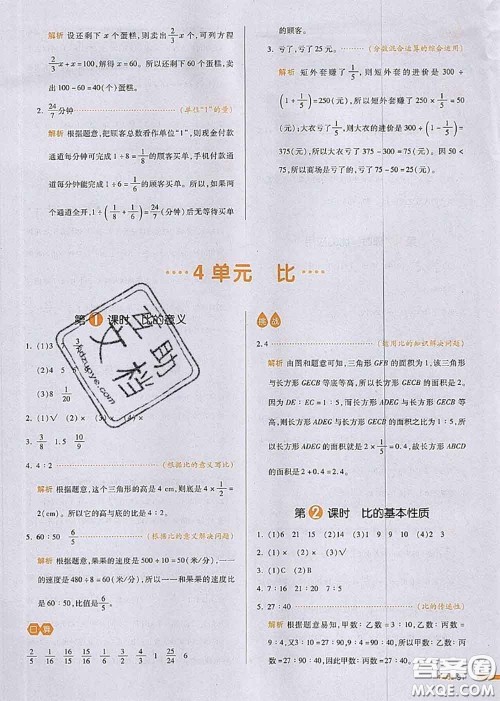 解析 设还剩下 x 个蛋糕,则卖出 2/3 x 个,可列方程
2/3 x + x = 100,解得 x = 60。所以还剩下 60 个蛋糕,
卖出 100 - 60 = 40(个)蛋糕。
2. 24/7 分钟 (单位“1”的量)
解析 根据题意,把顾客总数看作单位“1”,则现金付款
通道每分钟可完成 1÷8=1/8 的顾客买单,手机付款通
道每分钟能完成 1÷6=1/6 的顾客买单。所以,如果两个
通道全开,1÷(1/8+1/6)=24/7(分钟)后无等待买单
的顾客。
3. 亏了,亏了 25 元。 (分数混合运算的综合运用)
解析 短外套赚了 1/5,则短外套的进价是 300÷
(1+1/5)=250(元),所以短外套赚了 250×1/5=
50(元);大衣亏了 1/5,则大衣的进价是 300÷
(1-1/5)=375(元),所以大衣亏了 375-300=75(元)。因为 50<
75,所以商场是亏了的,亏了 75-50=25(元)。
4 单元 比
第 1 课时 比的意义
1. (1)3 7 3/
(3)8 1/20
2. (1)√ (2)× (3)× (4)×
3. 3/8 1.5 10/9
4. 4∶2 (根据比的意义写比)
解析 根据题意,这个三角形的高是 4 cm,底是 4×1/2=
2(cm),所以它的高与底的比是 4∶2。
5. 60∶50 6/5 (根据比的意义解决问题)
解析 根据题意,果果的速度是 500÷10=50(米/分),
的速度是 480÷8=60(米/分),所以与果果的速
度比是 60∶50,比值是 6/5。
口算
2/5 1/16 1/3 2/15 1/40 1 25/24 6
挑战
2.4 (运用比的知识解决问题)
解析 由图和题意可知,三角形 GFB 的面积为 1,该三角
形与长方形 GECB 等底等高,所以长方形 GECB 的面积是 2。
因为 DE∶EC=1∶5,所以长方形 ADEG 与长方形 GECB
的面积比为 1∶5,所以长方形 ADEG 的面积是长方形
GECB 的 1/5,长方形 ADEG 的面积就是 2×1/5=0.4。故长方形 ABCD
的面积是 2+0.4=2.4。
第 2 课时 比的基本性质
1. (1)6 21 15 (2)14 (3)9 (4)2 3
2. (1)× (2)√
4. 16∶21 7∶20 7∶5
5. 27∶40 (比的传递性)
解析 根据题意易知,甲数∶乙数=3∶10,乙数∶丙数=
9∶4,又因为 3∶10=27∶90,9∶4=90∶40,所以甲数∶乙数∶
丙数=27∶90∶40,因此甲数∶丙数=27∶40。
互助文档
Huzupye.com
答案圈
MXQE.COM